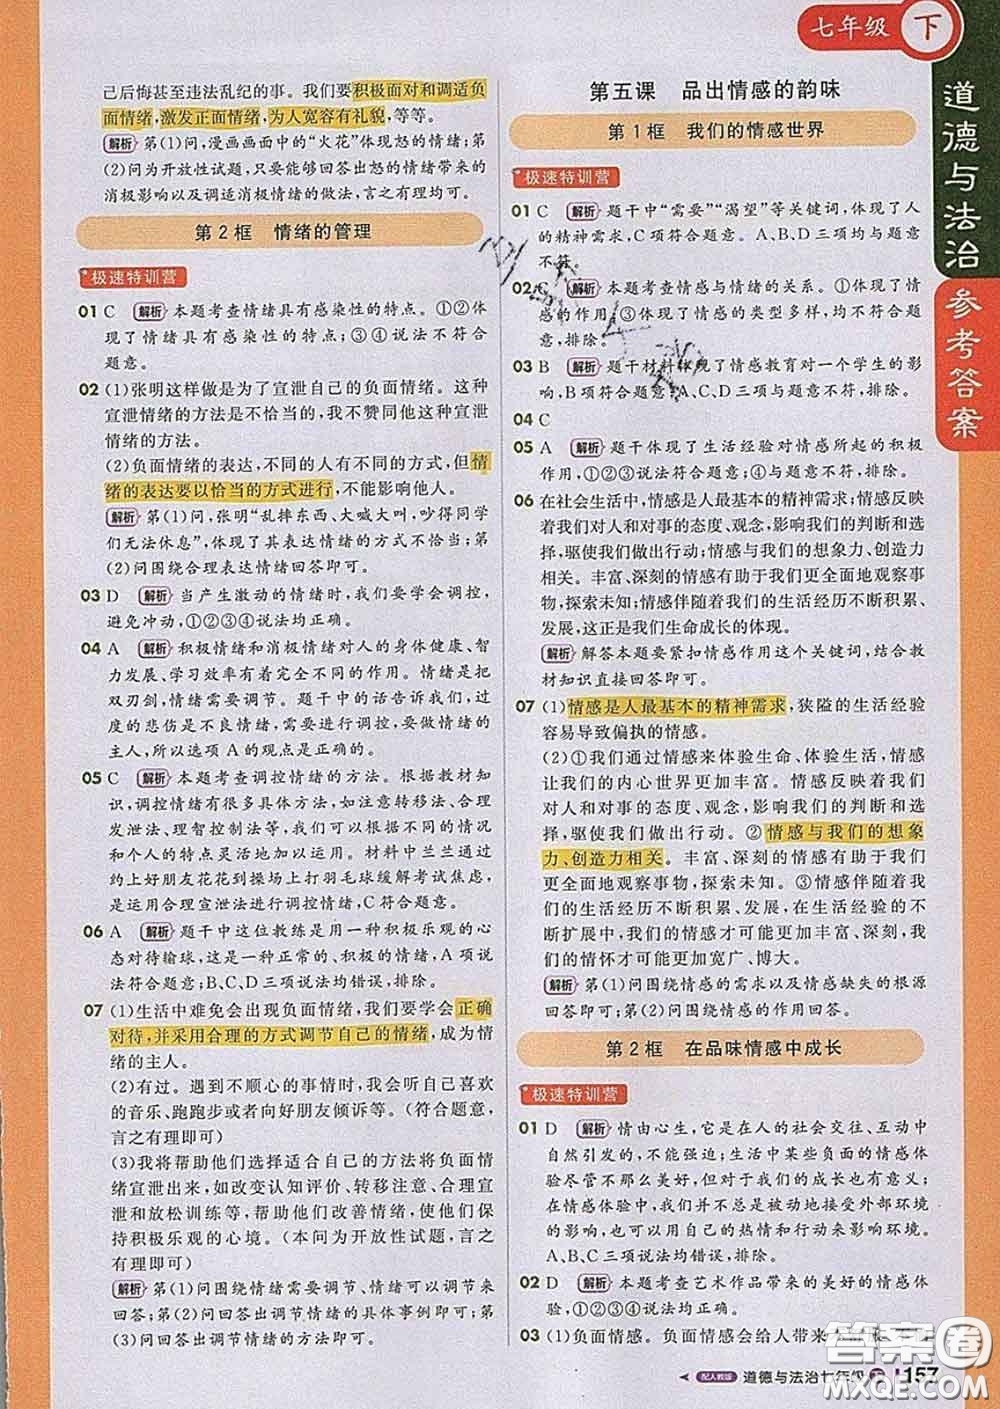 七年级 下
道德与法治参考答案
己后悔甚至违法乱纪的事。我们要积极面对和调适负
面情绪,激发正面情绪,为人宽容有礼貌,等等。
解析 第(1)问,漫画画面中的“火花”体现怒的情绪;第
(2)问为开放性试题,只要能够回答出怒的情绪带来的
消极影响以及调适消极情绪的做法,言之有理均可。
第2框 情绪的管理
极速特训营
01 C 解析 本题考查情绪具有感染性的特点。①②体
现了情绪具有感染性的特点;③④说法不符合
题意。
02 (1)张明这样做是为了宣泄自己的负面情绪。这种
宣泄情绪的方法是不恰当的,我不赞同他这种宣泄
情绪的方式。
(2)负面情绪的表达,不同的人有不同的方式,但情
绪的表达要以恰当的方式进行,不能影响他人。
解析 第(1)问,张明“乱摔东西、大喊大叫,吵得同学
们无法休息”,体现了其表达情绪的方式不恰当;第
(2)问围绕合理表达情绪回答即可。
03 D 解析 当产生激动的情绪时,我们要学会调控,
避免冲动,①②③④说法均正确。
04 A 解析 积极情绪和消极情绪对人的身体健康、智
力发展、学习效率有着不同的作用。情绪是把
双刃剑,情绪需要调节。题干中的话告诉我们,过
度的悲伤是不良情绪,需要进行调控,要做情绪的
主人,所以选项A的观点是正确的。
05 C 解析 本题考查调控情绪的方法。根据教材知
识,调控情绪有很多具体方法,如注意转移法、合理
发泄法、理智控制法等,我们可以根据不同的情况
和个人的特点灵活地加以运用。材料中兰兰通过
约上好朋友花花到操场上打羽毛球缓解考试焦虑,
是运用合理宣泄法进行调控,C符合题意。
06 A 解析 题干中这位教练是用一种积极乐观的心
态对待输球,这是一种正常的、积极的心理,A项说
法符合题意;B、C、D三项说法均错误,排除。
07 (1)生活中难免会出现负面情绪,我们要学会正确
对待,并采用合理的方式调节自己的情绪,成为情
绪的主人。
(2)有过。遇到不顺心的事情时,我会听自己喜欢
的音乐、跑跑步或者向好朋友倾诉等。(符合题意,
言之有理即可)
(3)我将帮助他们选择适合自己的方法将负面情
绪宣泄出来,如改变认知评价、转移注意、合理宣
泄和放松训练等,帮助他们改善情绪,使他们保
持积极乐观的心境。(本问为开放性试题,言之有
理即可)
解析 第(1)问围绕情绪需要调节,情绪可以调节来
回答;第(2)问回答出调节情绪的具体事例即可;第
(3)问回答出调节情绪的方法即可。
第五课 品出情感的韵味
第1框 我们的情感世界
极速特训营
01 C 解析 题干中“需要”“渴望”等关键词,体现了人
的精神需求,C项符合题意。A、B、D三项均与题意
不符。
02 解析 本题考查情感与情绪的关系。②体现了情
感的作用,③体现了情感的类型多样,均不符合题
意,排除。
03 B 解析 题干材料体现了情感教育对一个学生的影
响,B项符合题意。A、C、D三项与题意不符,排除。
04 C
05 A 解析 题干体现了生活经验对情感所起的积极
作用,①②③说法符合题意;④与题意不符,排除。
06 在社会生活中,情感是人最基本的精神需求;情感反映
着我们对人和对事的态度、观念,影响我们的判断和选
择,驱使我们做出行动;情感与我们的想象力、创造力
相关。丰富、深刻的情感有助于我们更全面地观察事
物,探索未知;情感伴随着我们的生活经历不断积累、
发展,这正是我们生命成长的体现。
解析 解答本题要紧扣情感作用这个关键词,结合教
材知识直接回答即可。
07 (1)情感是人最基本的精神需求,狭隘的生活经验
容易导致偏执的情感。
(2)①我们通过情感来体验生命、体验生活,情感
让我们的内心世界更加丰富。情感反映着我们
对人和对事的态度、观念,影响我们的判断和选
择,驱使我们做出行动。②情感与我们的想象
力、创造力相关。丰富、深刻的情感有助于我们
更全面地观察事物,探索未知。③情感伴随着我
们的生活经历不断积累、发展,在生活经验的不
断扩展中,我们的情感可能变得更加丰富、深刻,我
们的情怀才可能更加宽广、博大。
解析 第(1)问围绕情感的需求以及情感缺失的根源
回答即可;第(2)问围绕情感的作用回答即可。
第2框 在品味情感中成长
极速特训营
01 D 解析 情由心生,它是在人的社会交往、互动中
自然引发的,不能强迫;生活中某些负面的情感体
验尽管不那么美好,但对于我们的成长也有意义;
在情感体验中,我们并不总是被动地接受外部环境
的影响,也可以用自己的热情和行动来影响环境。
A、B、C三项说法均错误,排除。
02 D 解析 本题考查艺术作品带来的美好的情感体
验,①②③④说法均正确。
03 (1)负面情感。负面情感会给人带来
配人教版 道德与法治七年级 157
答案卷
MXQE.COM